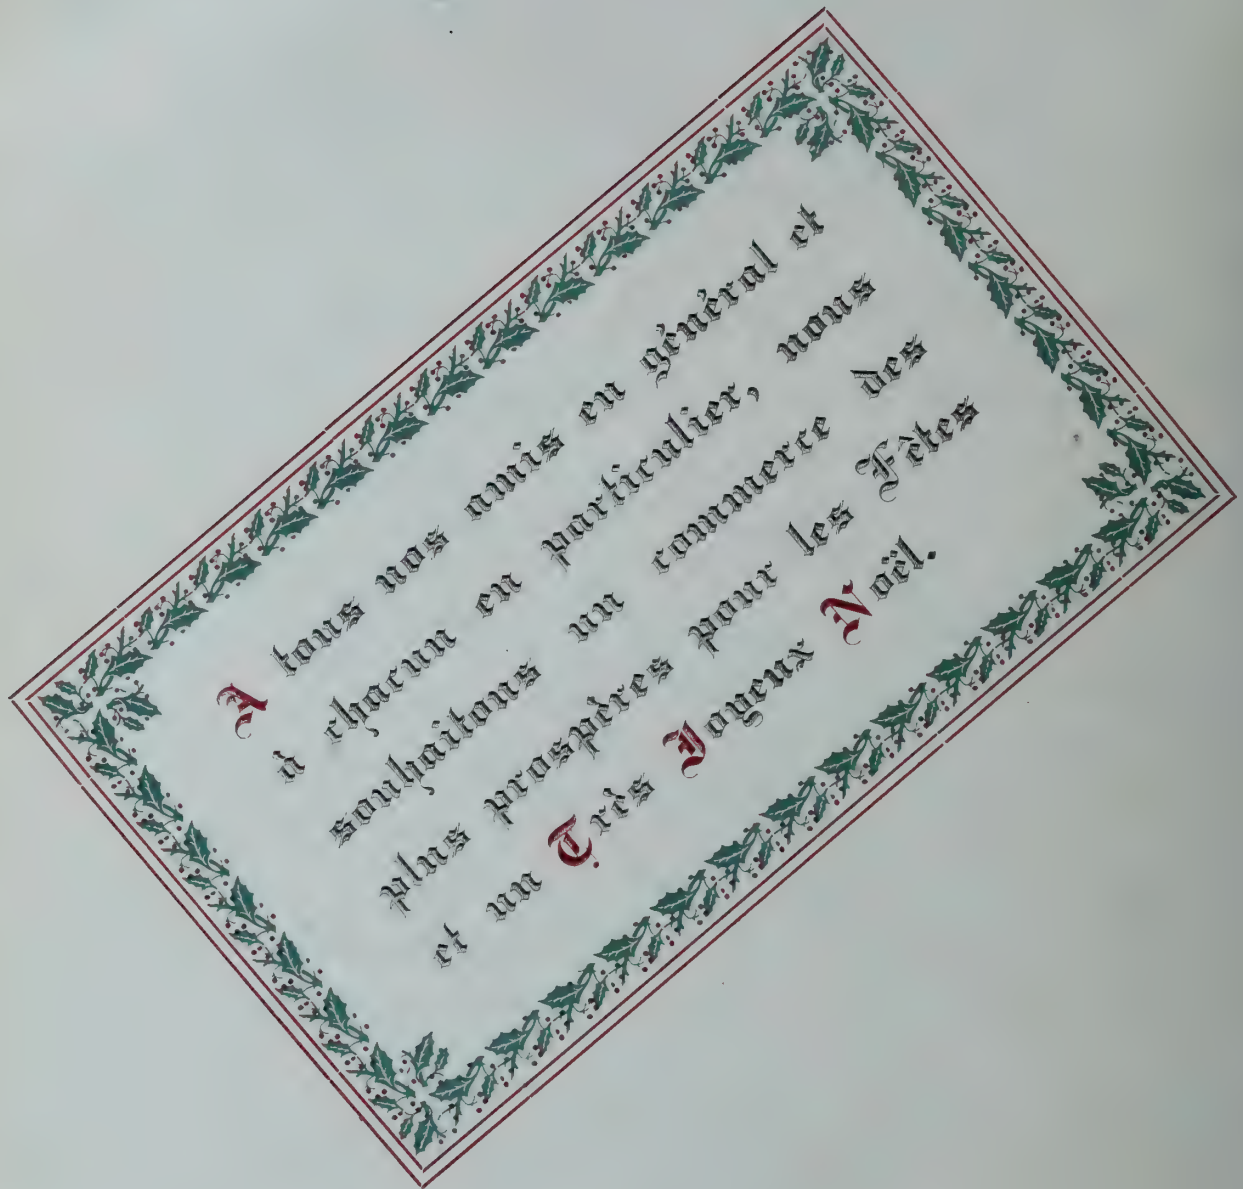 A tous nos amis en général et
à chacun en particulier, nous
souhaitons un commerce des
plus prospères pour les Fêtes
et un Très Joyeux Noël.